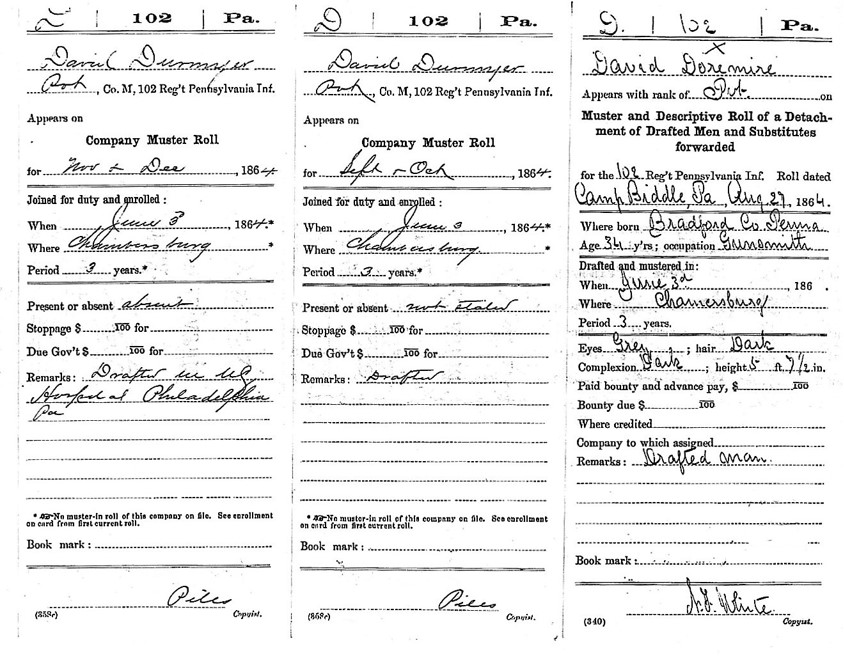 D | 102 | Pa.
David Durmyer
Pvt, Co. M, 102 Reg't Pennsylvania Inf.
Appears on
Company Muster Roll
for Nov & Dec, 1864.
Joined for duty and enrolled :
When June 3, 1864.*
Where Chambersburg *
Period 3 years.*
Present or absent absent
Stoppage $ 100 for
Due Gov't $ 100 for
Remarks: Drafted in US
Hospital Philadelphia
Pa
* No muster-in roll of this company on file. See enrollment
on card from first current roll.
Book mark:
Piles
(858c) Copyist.
D | 102 | Pa.
David Durmyer
Pvt, Co. M, 102 Reg't Pennsylvania Inf.
Appears on
Company Muster Roll
for Sept & Oct, 1864.
Joined for duty and enrolled :
When June 3, 1864.*
Where Chambersburg *
Period 3 years.*
Present or absent not stated
Stoppage $ 100 for
Due Gov't $ 100 for
Remarks: Drafted
* No muster-in roll of this company on file. See enrollment
on card from first current roll.
Book mark:
Piles
(858c) Copyist.
D. | 102 | Pa.
x
David Doremire
Appears with rank of Pvt. on
Muster and Descriptive Roll of a Detach-
ment of Drafted Men and Substitutes
forwarded
for the 102 Reg't Pennsylvania Inf. Roll dated
Camp Biddle, Pa, Aug 27, 1864.
Where born Bradford Co. Penna
Age 34 y'rs; occupation Gunsmith
Drafted and mustered in:
When June 3d, 186 .
Where Chamersburg
Period 3 years.
Eyes Grey; hair Dark
Complexion Dark; height 5 ft. 7 1/2 in.
Paid bounty and advance pay, $ 100
Bounty due $ 100
Where credited
Company to which assigned
Remarks: Drafted man.
Book mark:
White
(340) Copyist.